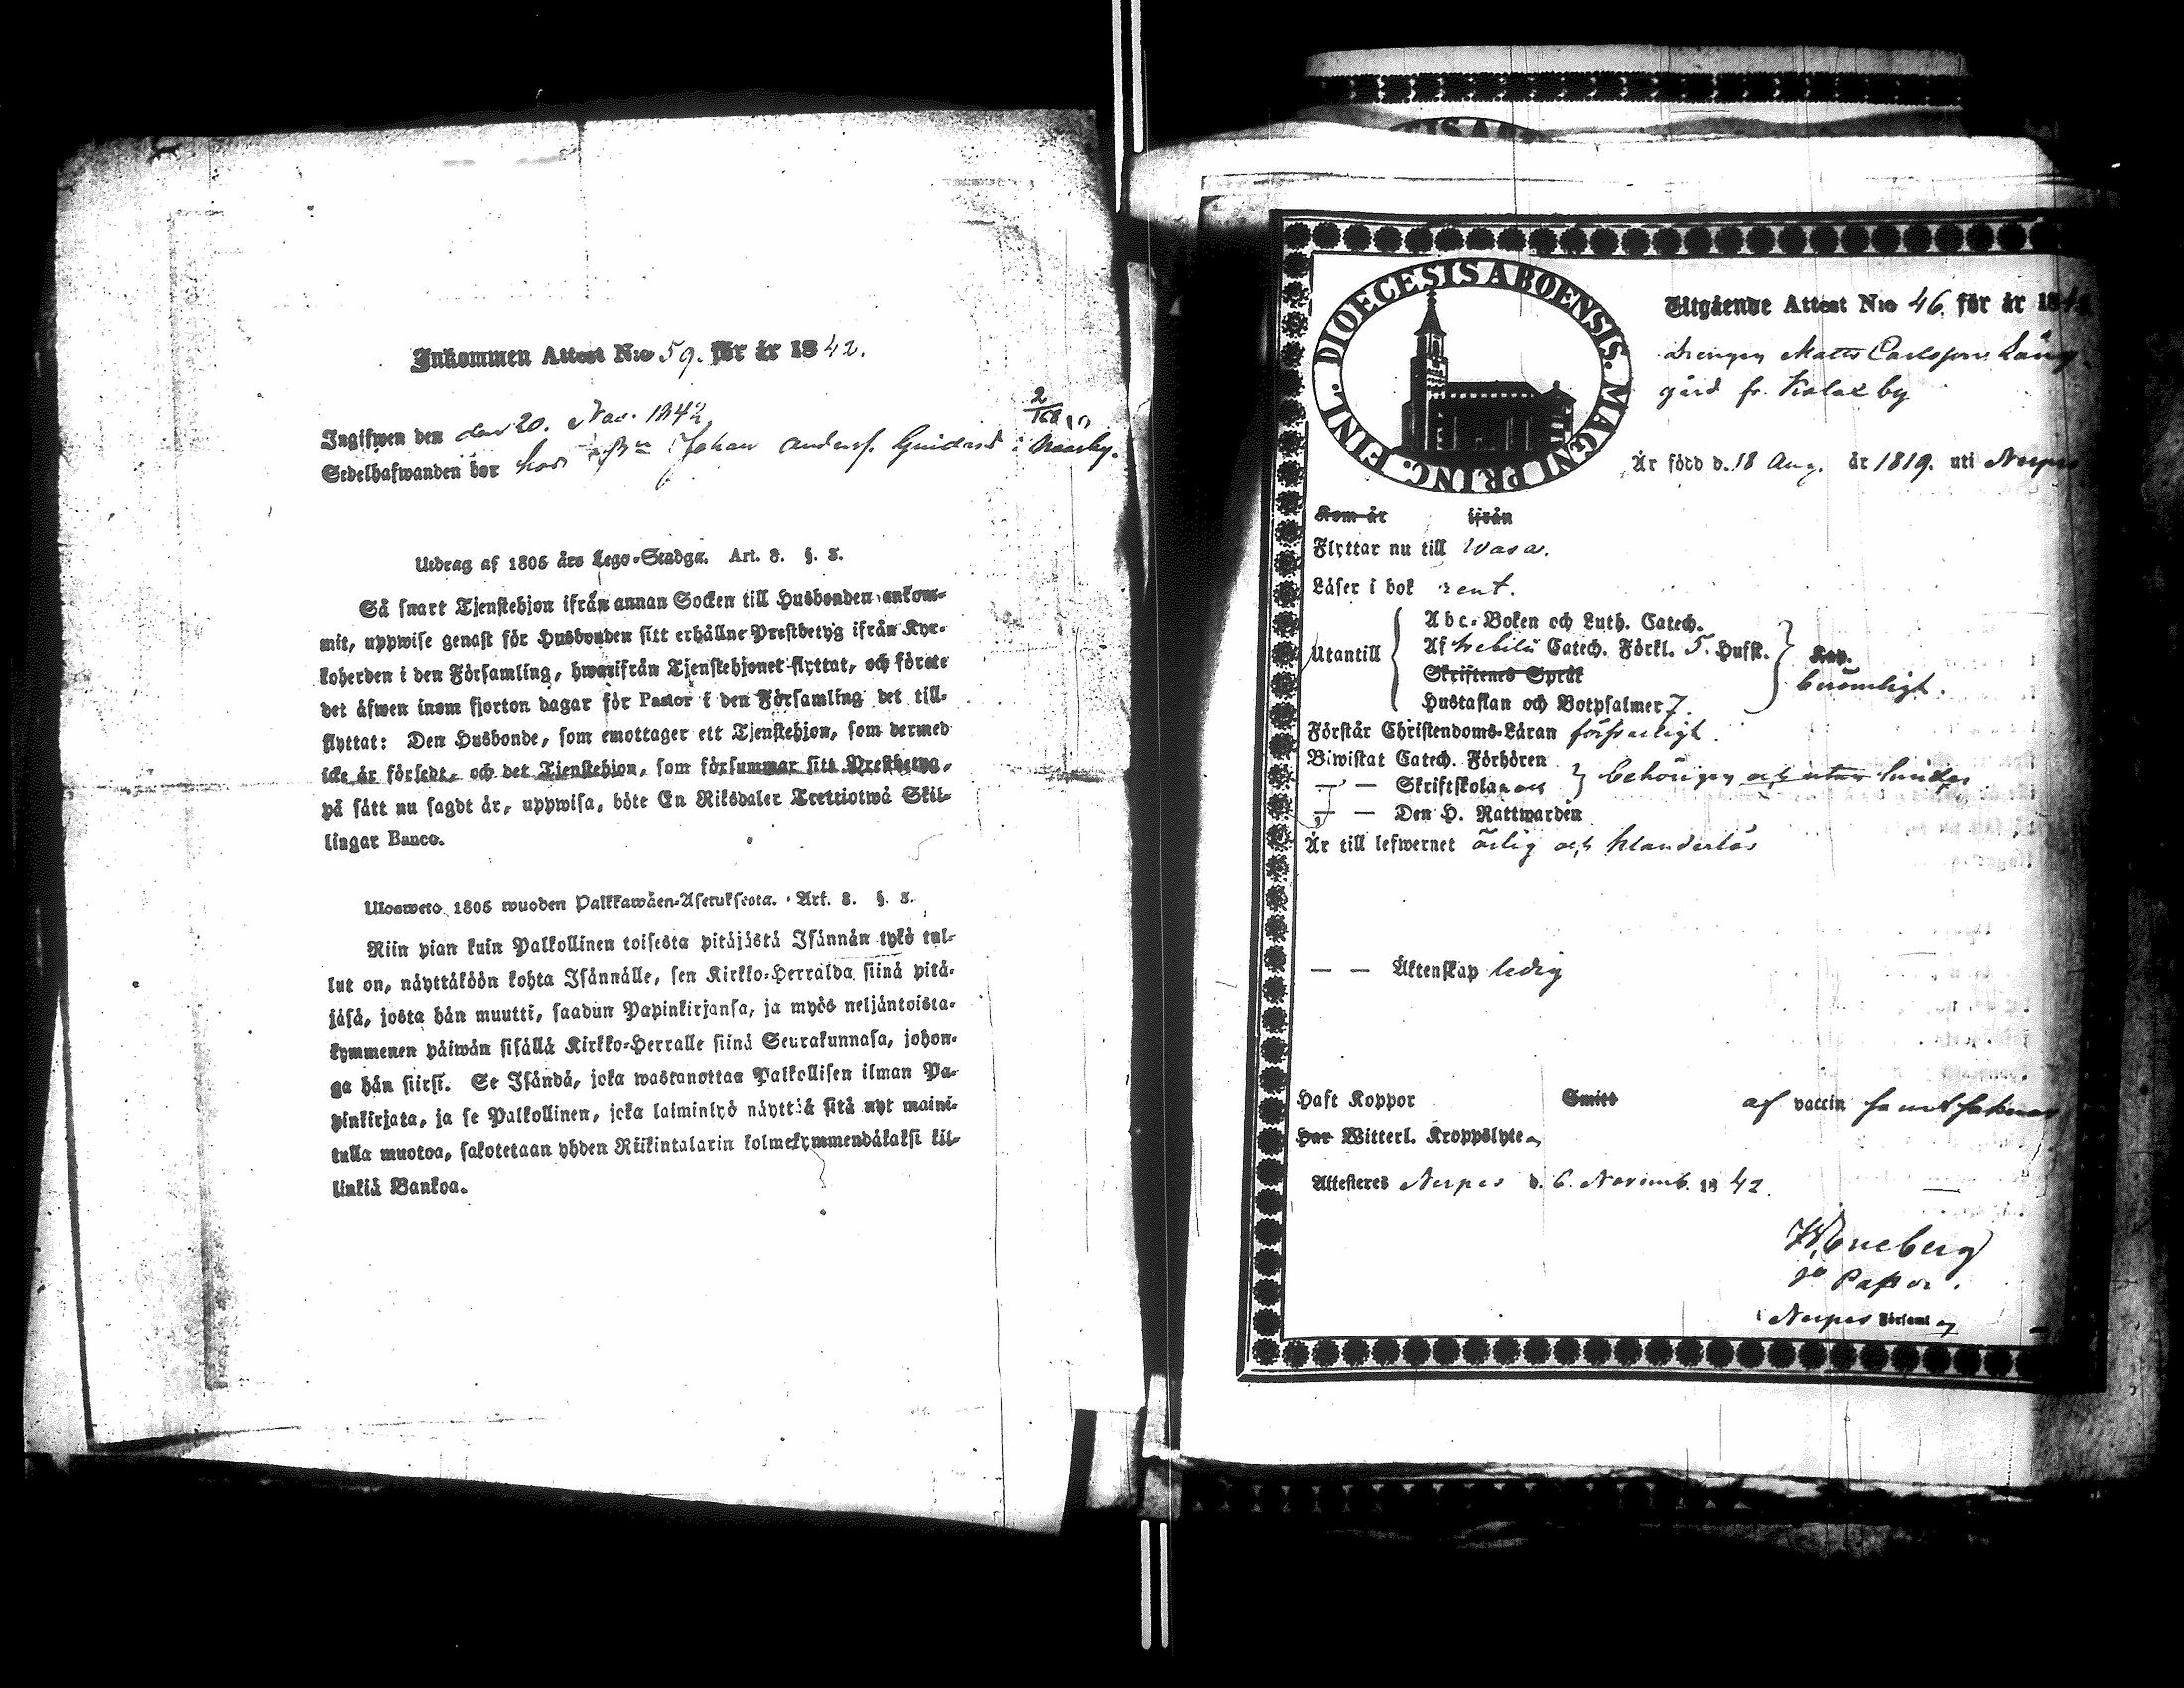 Inkommen Attest N:o 59. för år 1842.
2
168
Ingifwen den den 20. Nov. 1842
Sedelhafwanden bor hos Johan Anders.
Utdrag af 1805 års Lego-Stadga. Art. 8. §. 3.
Så snart Tjenstehjon ifrån annan Socken till Husbonden ankom-
mit, uppwise genast för Husbonden sitt erhållne Prestbetyg ifrån Kyr-
koherden i den Församling, hwarifrån Tjenstehjonet flyttat, och förete
det äfwen inom fjorton dagar för Pastor i den Församling det till-
flyttat: Den Husbonde, som emottager ett Tjenstehjon, som dermed
icke är försedt, och det Tjenstehjon, som försummar sitt Prestbetyg,
på sätt nu sagdt är, uppwisa, böte En Riksdaler Trettiotwå Skil-
lingar Banco.
Ulosweto 1805 wuoden Palkkawäen-Asetuksesta. Art. 8. §. 3.
Niin pian kuin Palkollinen toisesta pitäjästä Isännän tykö tul-
lut on, näyttäköön kohta Isännälle, sen Kirkko-Herralda siinä pitä-
jäsä, josta hän muutti, saadun Papinkirjansa, ja myös neljäntoista-
kymmenen päiwän sisällä Kirkko-Herralle siinä Seurakunnasa, johon-
ga hän siirsi. Se Isändä, joka wastanottaa Palkollisen ilman Pa-
pinkirjata, ja se Palkollinen, joka laiminlyö näyttää sitä nyt maini-
tulla muotoa, sakotetaan yhden Riikintalarin kolmekymmendäkaksi kil-
linkiä Bankoa.
DIOECESIS ABOENSIS. MAGNI PRINC. FINL.
Utgående Attest N:o 46 för år 184
Drengen Matts Carlsson Lång-
gård fr. Kalax by
Är född d. 18 Aug. år 1819. uti Nerpes
Kom år ifrån
Flyttar nu till Wasa.
Läser i bok rent.
Utantill
Abc-Boken och Luth. Catech.
Af Svebilii Catech. Förkl. 5. Hufst.
Skriftenes Språk
Hustaflan och Botpsalmer 7.
Kap.
berömligt.
Förstår Christendoms-Läran försvarligt.
Biwistat Catech. Förhören
— — Skriftskolan och
— — Den H. Nattwarden
behörigen och utan hinder
Är till lefwernet ärlig och klanderlös
— — Äktenskap ledig
Haft Koppor Smitt af vaccin
Har Witterl. Kroppslyte
Attesteres Nerpes d. 6. Novemb. 1842.
Pastor.
i Nerpes Församl